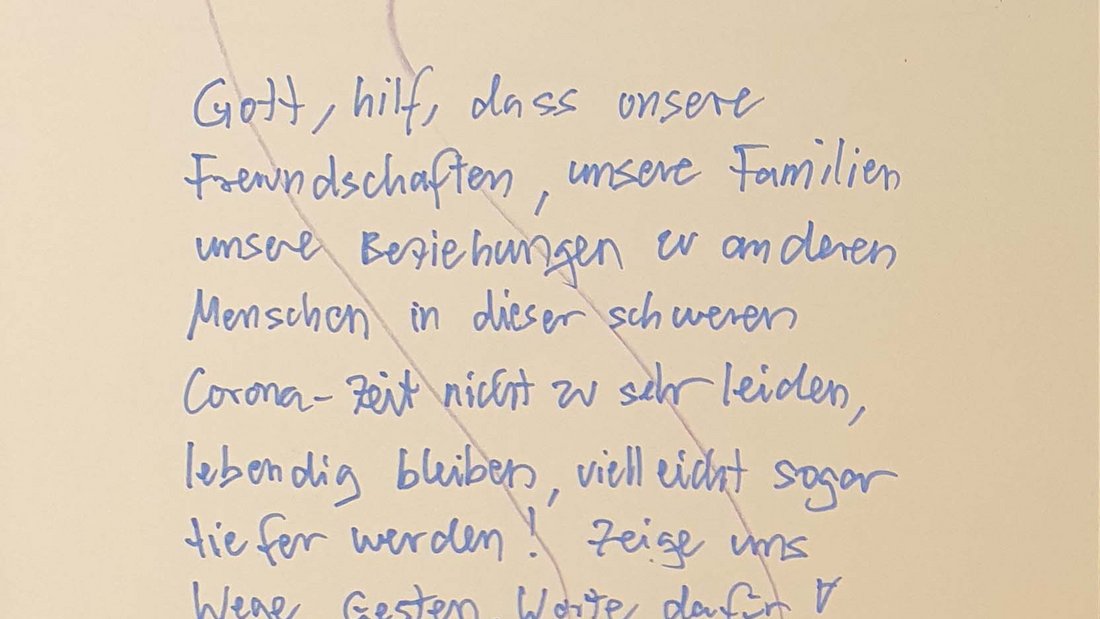 Gott, hilf, dass unsere
Freundschaften, unsere Familien
unsere Beziehungen zu anderen
Menschen in dieser schweren
Corona-Zeit nicht zu sehr leiden,
lebendig bleiben, vielleicht sogar
tiefer werden! Zeige uns
Wege, Gesten, Worte dafür